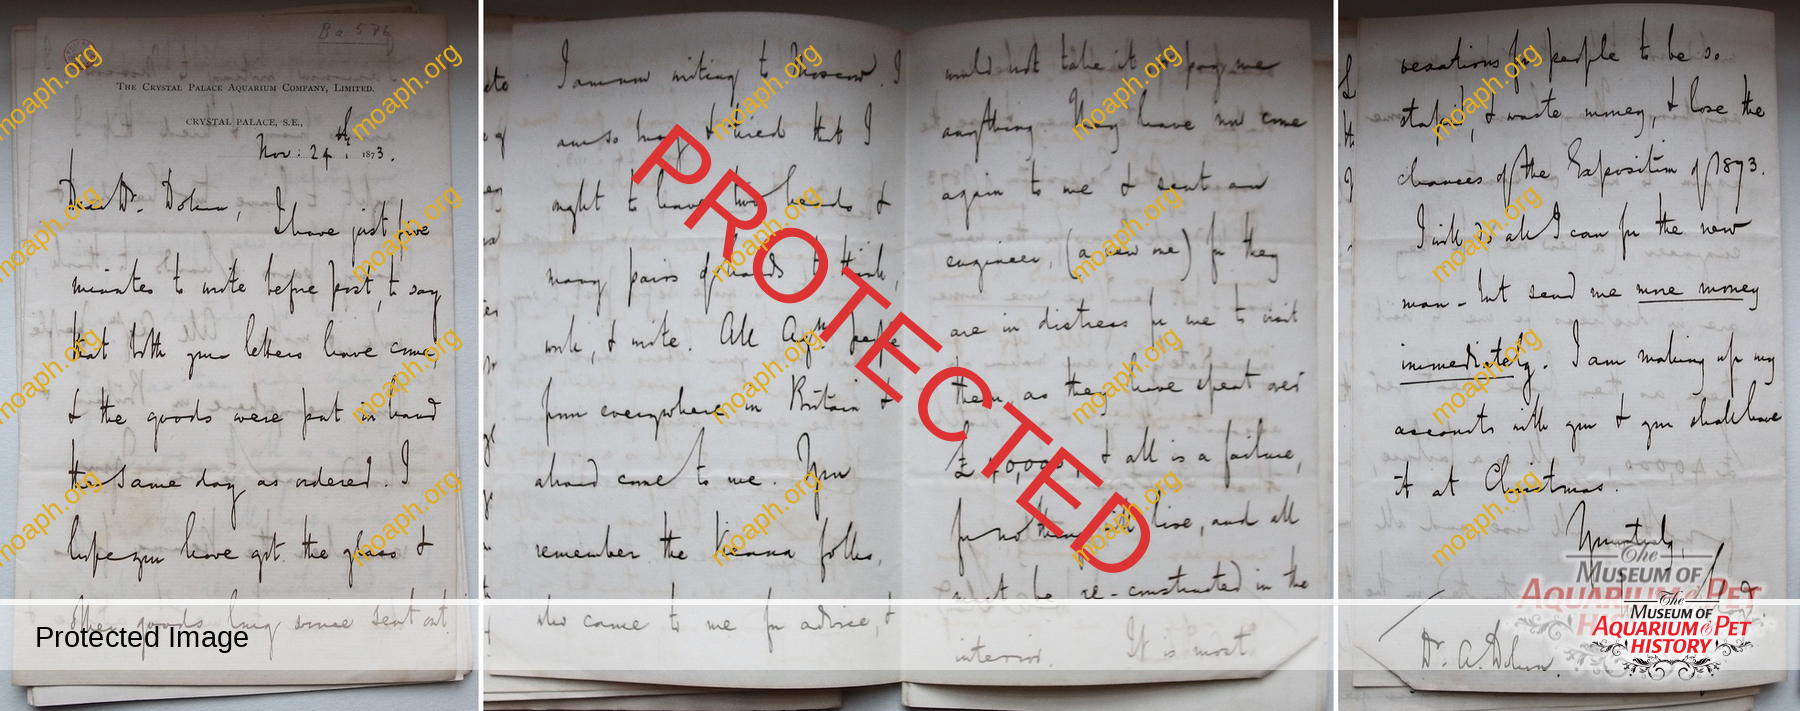 Ba 576
THE CRYSTAL PALACE AQUARIUM COMPANY, LIMITED.
CRYSTAL PALACE, S.E.,
Nov: 24th. 1873.
Dear Dr. Dohrn,
I have just five
minutes to write before post, to say
that both your letters have come,
& the goods were put in hand
the same day as ordered. I
hope you have got the glass &
other goods long since sent out.
I am now writing to Moscow. I
am so busy & tired that I
ought to have two heads &
many pairs of hands to think,
work, & write. All Aqm. people
from everywhere in Britain &
abroad come to me. You
remember the Vienna folks,
who came to me for advice, &
would not take it or pay me
anything. They have now come
again to me & sent an
engineer, (a new one) for they
are in distress for me to visit
them, as they have spent over
£40,000, & all is a failure,
for nothing will live, and all
must be re-constructed in the
interior. It is most
vexatious for people to be so
stupid, & waste money, & lose the
chances of the Exposition of 1873.
I will do all I can for the new
man - but send me more money
immediately. I am making up my
accounts with you & you shall have
it at Christmas.
Yours truly,
Dr. A. Dohrn.
PROTECTED
Protected Image
The
MUSEUM OF
AQUARIUM & PET
HISTORY
moaph.org